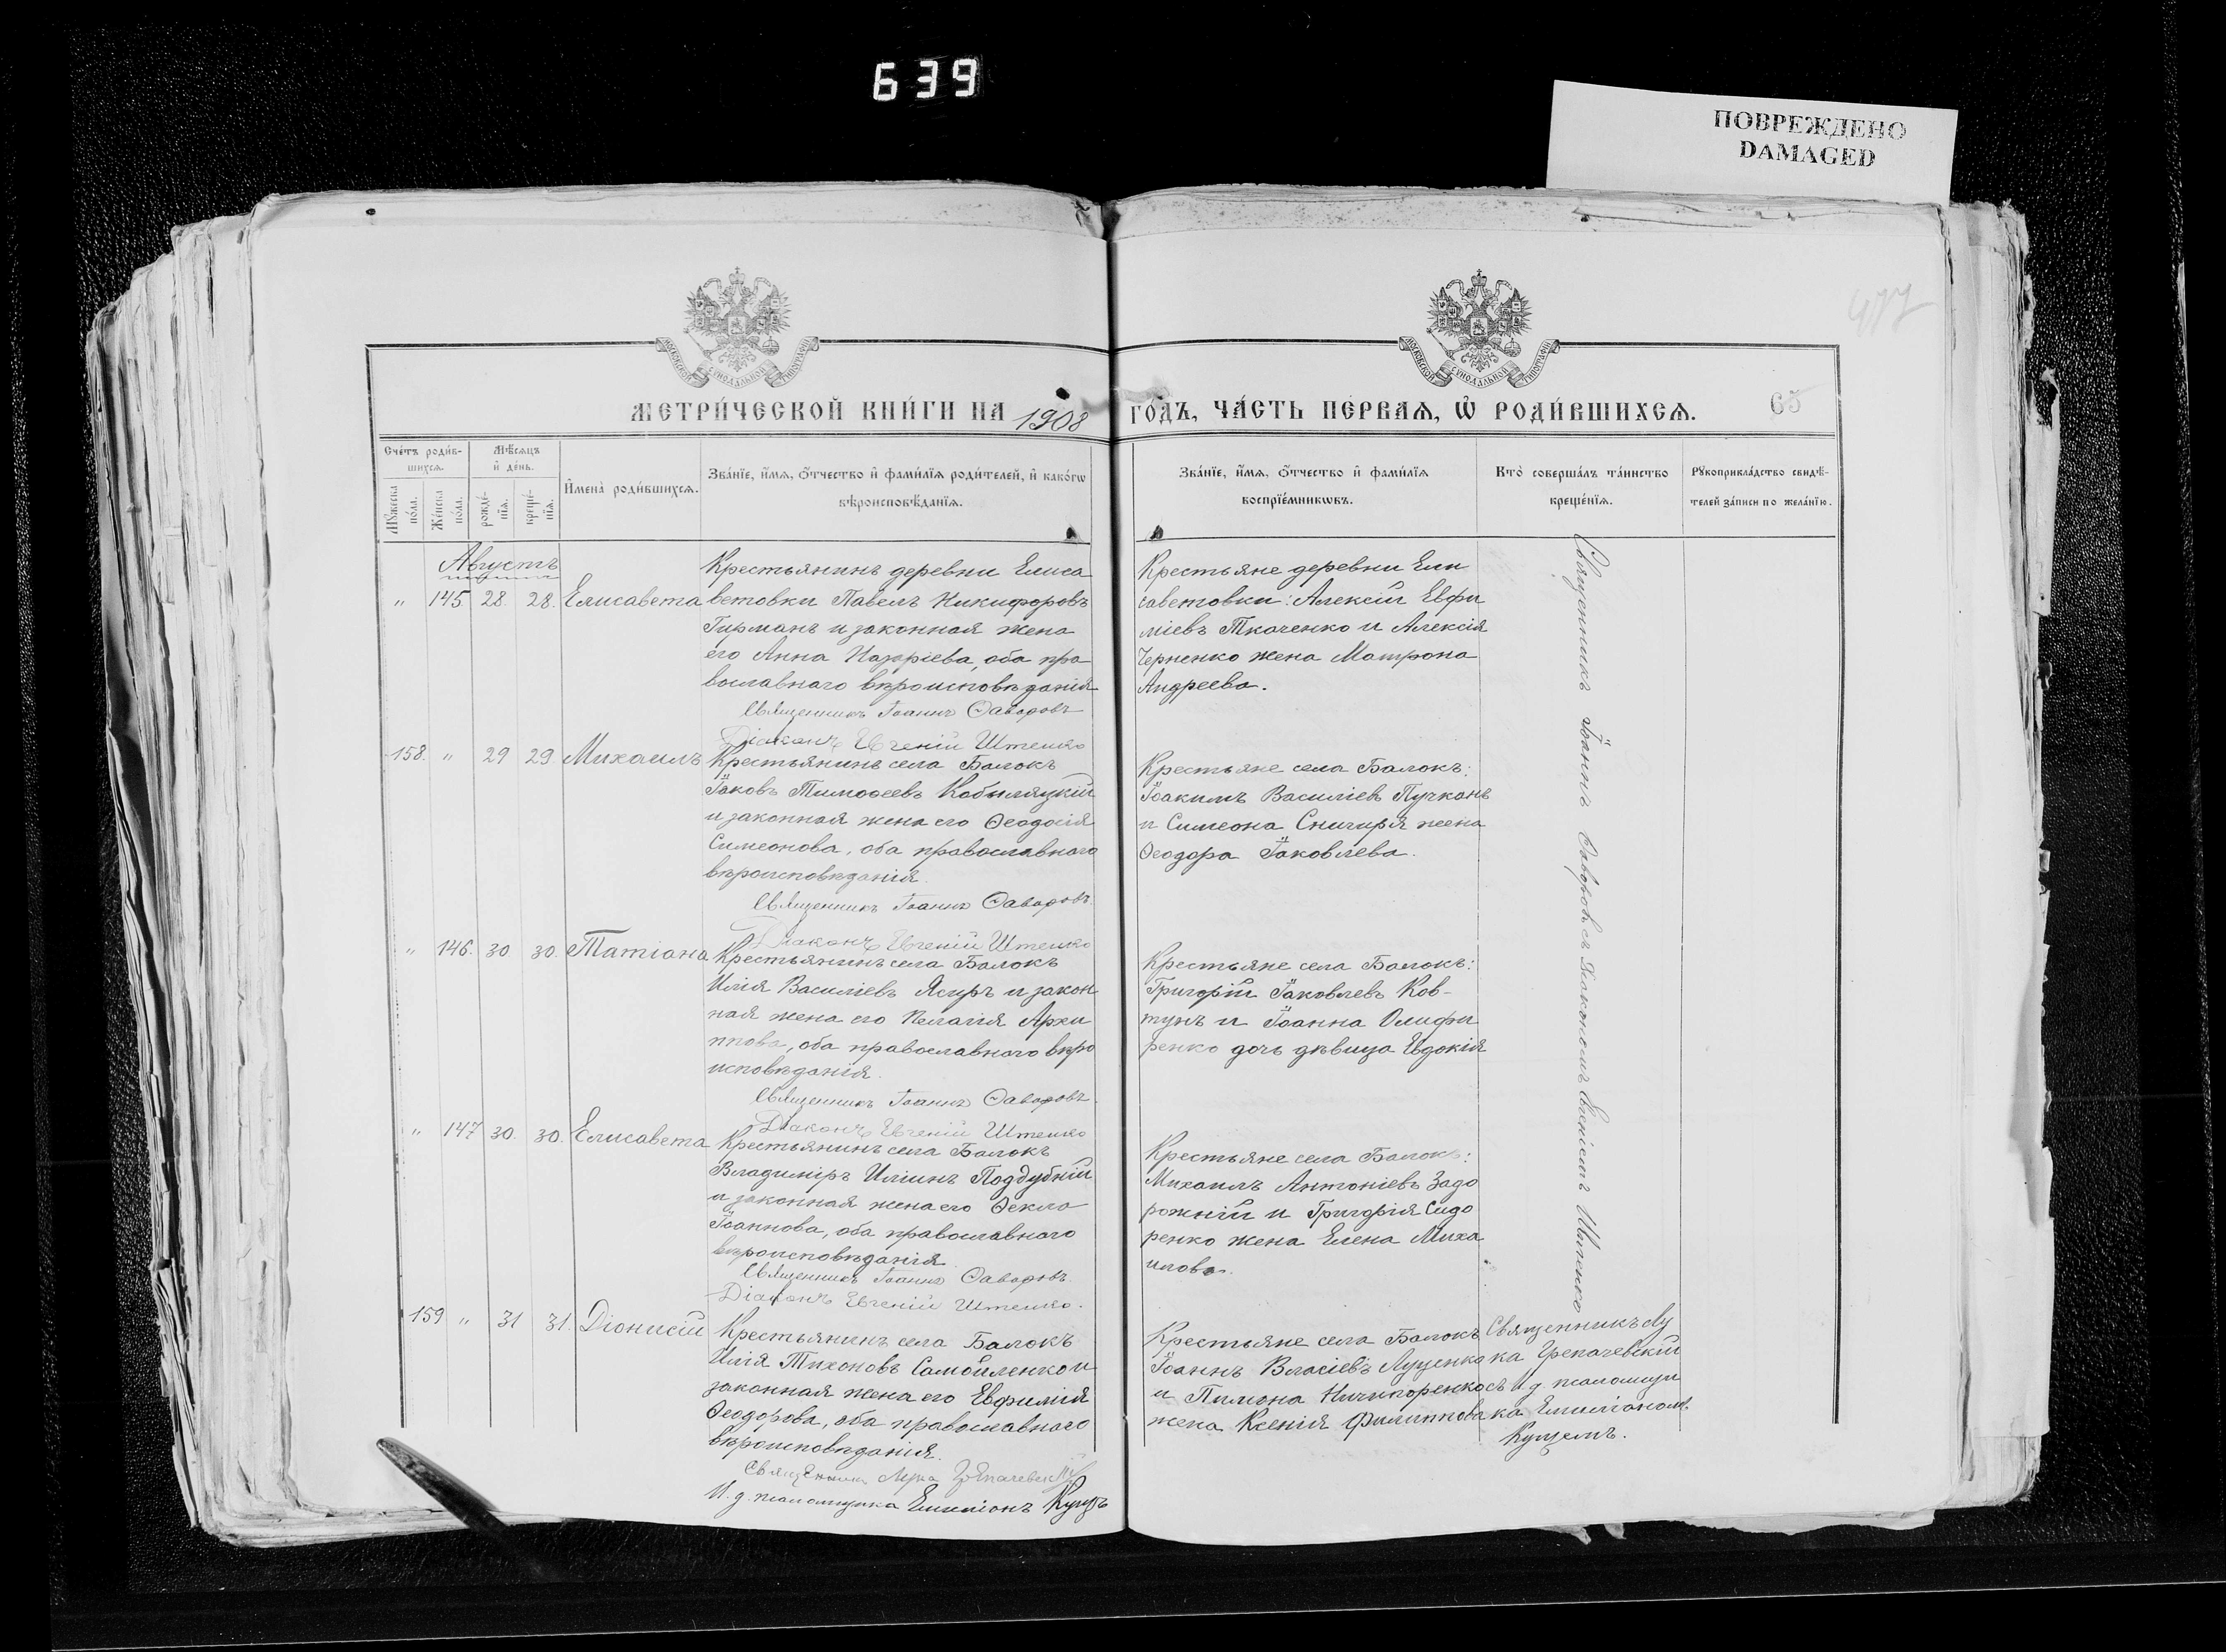 639
ПОВРЕЖДЕНО
DAMAGED
477
МОСКОВСКОЙ СУНОДАЛЬНОЙ ТИПОГРАФІИ
МОСКОВСКОЙ СУНОДАЛЬНОЙ ТИПОГРАФІИ
МЕТРИ́ЧЕСКОЙ КНИ́ГИ НА 1908 ГО́ДЪ, ЧА́СТЬ ПЕ́РВАЯ, Ѡ҆ РОДИ́ВШИХСЯ. 65
Сче́тъ роди́в-
шихся.
Мѣ́сяцъ
и҆ де́нь.
Му́жеска
по́ла.
Же́нска
по́ла.
рожде́-
нїя.
креще́-
нїя.
И҆мена̀ роди́вшихся.
Зва́нїе, и҆́мя, ѻ҆́тчество и҆ фами́лїя роди́телей, и҆ како́гѡ
вѣроисповѣ́данїя.
Зва́нїе, и҆́мя, ѻ҆́тчество и҆ фами́лїя
воспрїе́мникѡвъ.
Кто̀ соверша́лъ та́инство
креще́нїя.
Рукоприкла́дство свидѣ́-
телей за́писи по жела́нїю.
Августъ
" 145 28. 28. Елисавета
Крестьянинъ деревни Елиса
ветовки Павелъ Никифоровъ
Гирманъ и законная жена
его Анна Назаріева, оба пра
вославнаго вѣроисповѣданія
Священникъ Іоаннъ Ѳаворовъ
Діаконъ Евгеній Штепко
Крестьяне деревни Ели
саветовки: Алексій Евфи
міевъ Ткаченко и Алексія
Черненко жена Матрона
Андреева.
Священникъ Іоаннъ Ѳаворовъ съ Діакономъ Евгеніемъ Штепко
158. " 29 29 Михаилъ
Крестьянинъ села Балокъ
Іаковъ Тимоѳеевъ Кобыляцкій
и законная жена его Ѳеодосія
Симеонова, оба православнаго
вѣроисповѣданія.
Священникъ Іоаннъ Ѳаворовъ.
Діаконъ Евгеній Штепко
Крестьяне села Балокъ:
Іоакимъ Василіевъ Пучканъ
и Симеона Снигиря жена
Ѳеодора Іаковлева.
" 146. 30 30. Татіана
Крестьянинъ села Балокъ
Илія Василіевъ Ясиръ и закон
ная жена его Пелагія Архи
ппова, оба православнаго вѣро
исповѣданія.
Священникъ Іоаннъ Ѳаворовъ.
Діаконъ Евгеній Штепко
Крестьяне села Балокъ:
Григорій Іаковлевъ Ков-
тунъ и Іоанна Олифи
ренко дочь дѣвица Евдокія
" 147 30. 30. Елисавета
Крестьянинъ села Балокъ
Владиміръ Иліинъ Поддубній
и законная жена его Ѳекла
Іоаннова, оба православнаго
вѣроисповѣданія.
Священникъ Іоаннъ Ѳаворовъ.
Діаконъ Евгеній Штепко.
Крестьяне села Балокъ:
Михаилъ Антоніевъ Задо
рожній и Григорія Сидо
ренко жена Елена Миха
илова.
159 " 31 31. Діонисій
Крестьянинъ села Балокъ
Илія Тихоновъ Самойленко и
законная жена его Евфимія
Ѳеодорова, оба православнаго
вѣроисповѣданія.
Священникъ Лука Грепачевскій
И. д. псаломщика Емиліанъ Кущъ
Крестьяне села Балокъ
Іоаннъ Власіевъ Луценко
и Пимона Ничипоренко
жена Ксенія Филиппова
Священникъ Лу
ка Грепачевскій
съ И. д. псаломщи
ка Емиліаномъ
Кущемъ.